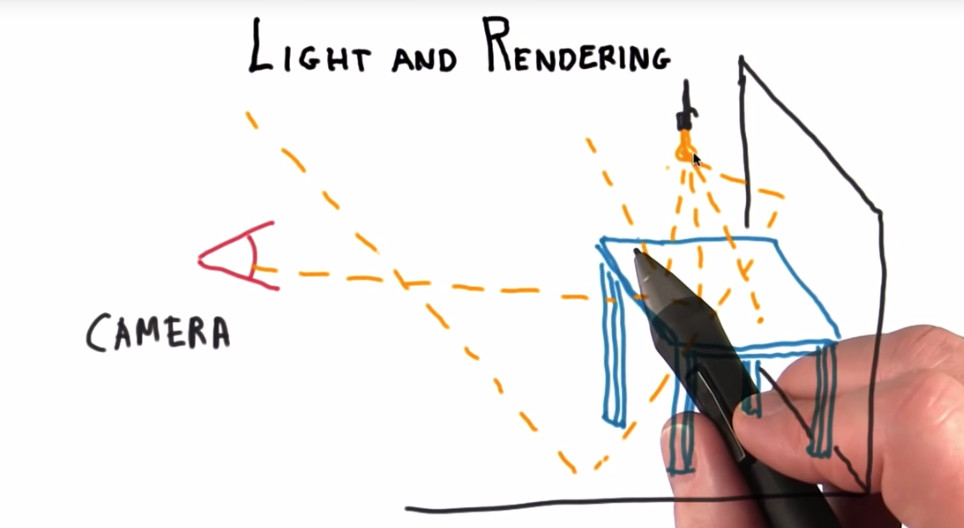 LIGHT AND RENDERING
CAMERA